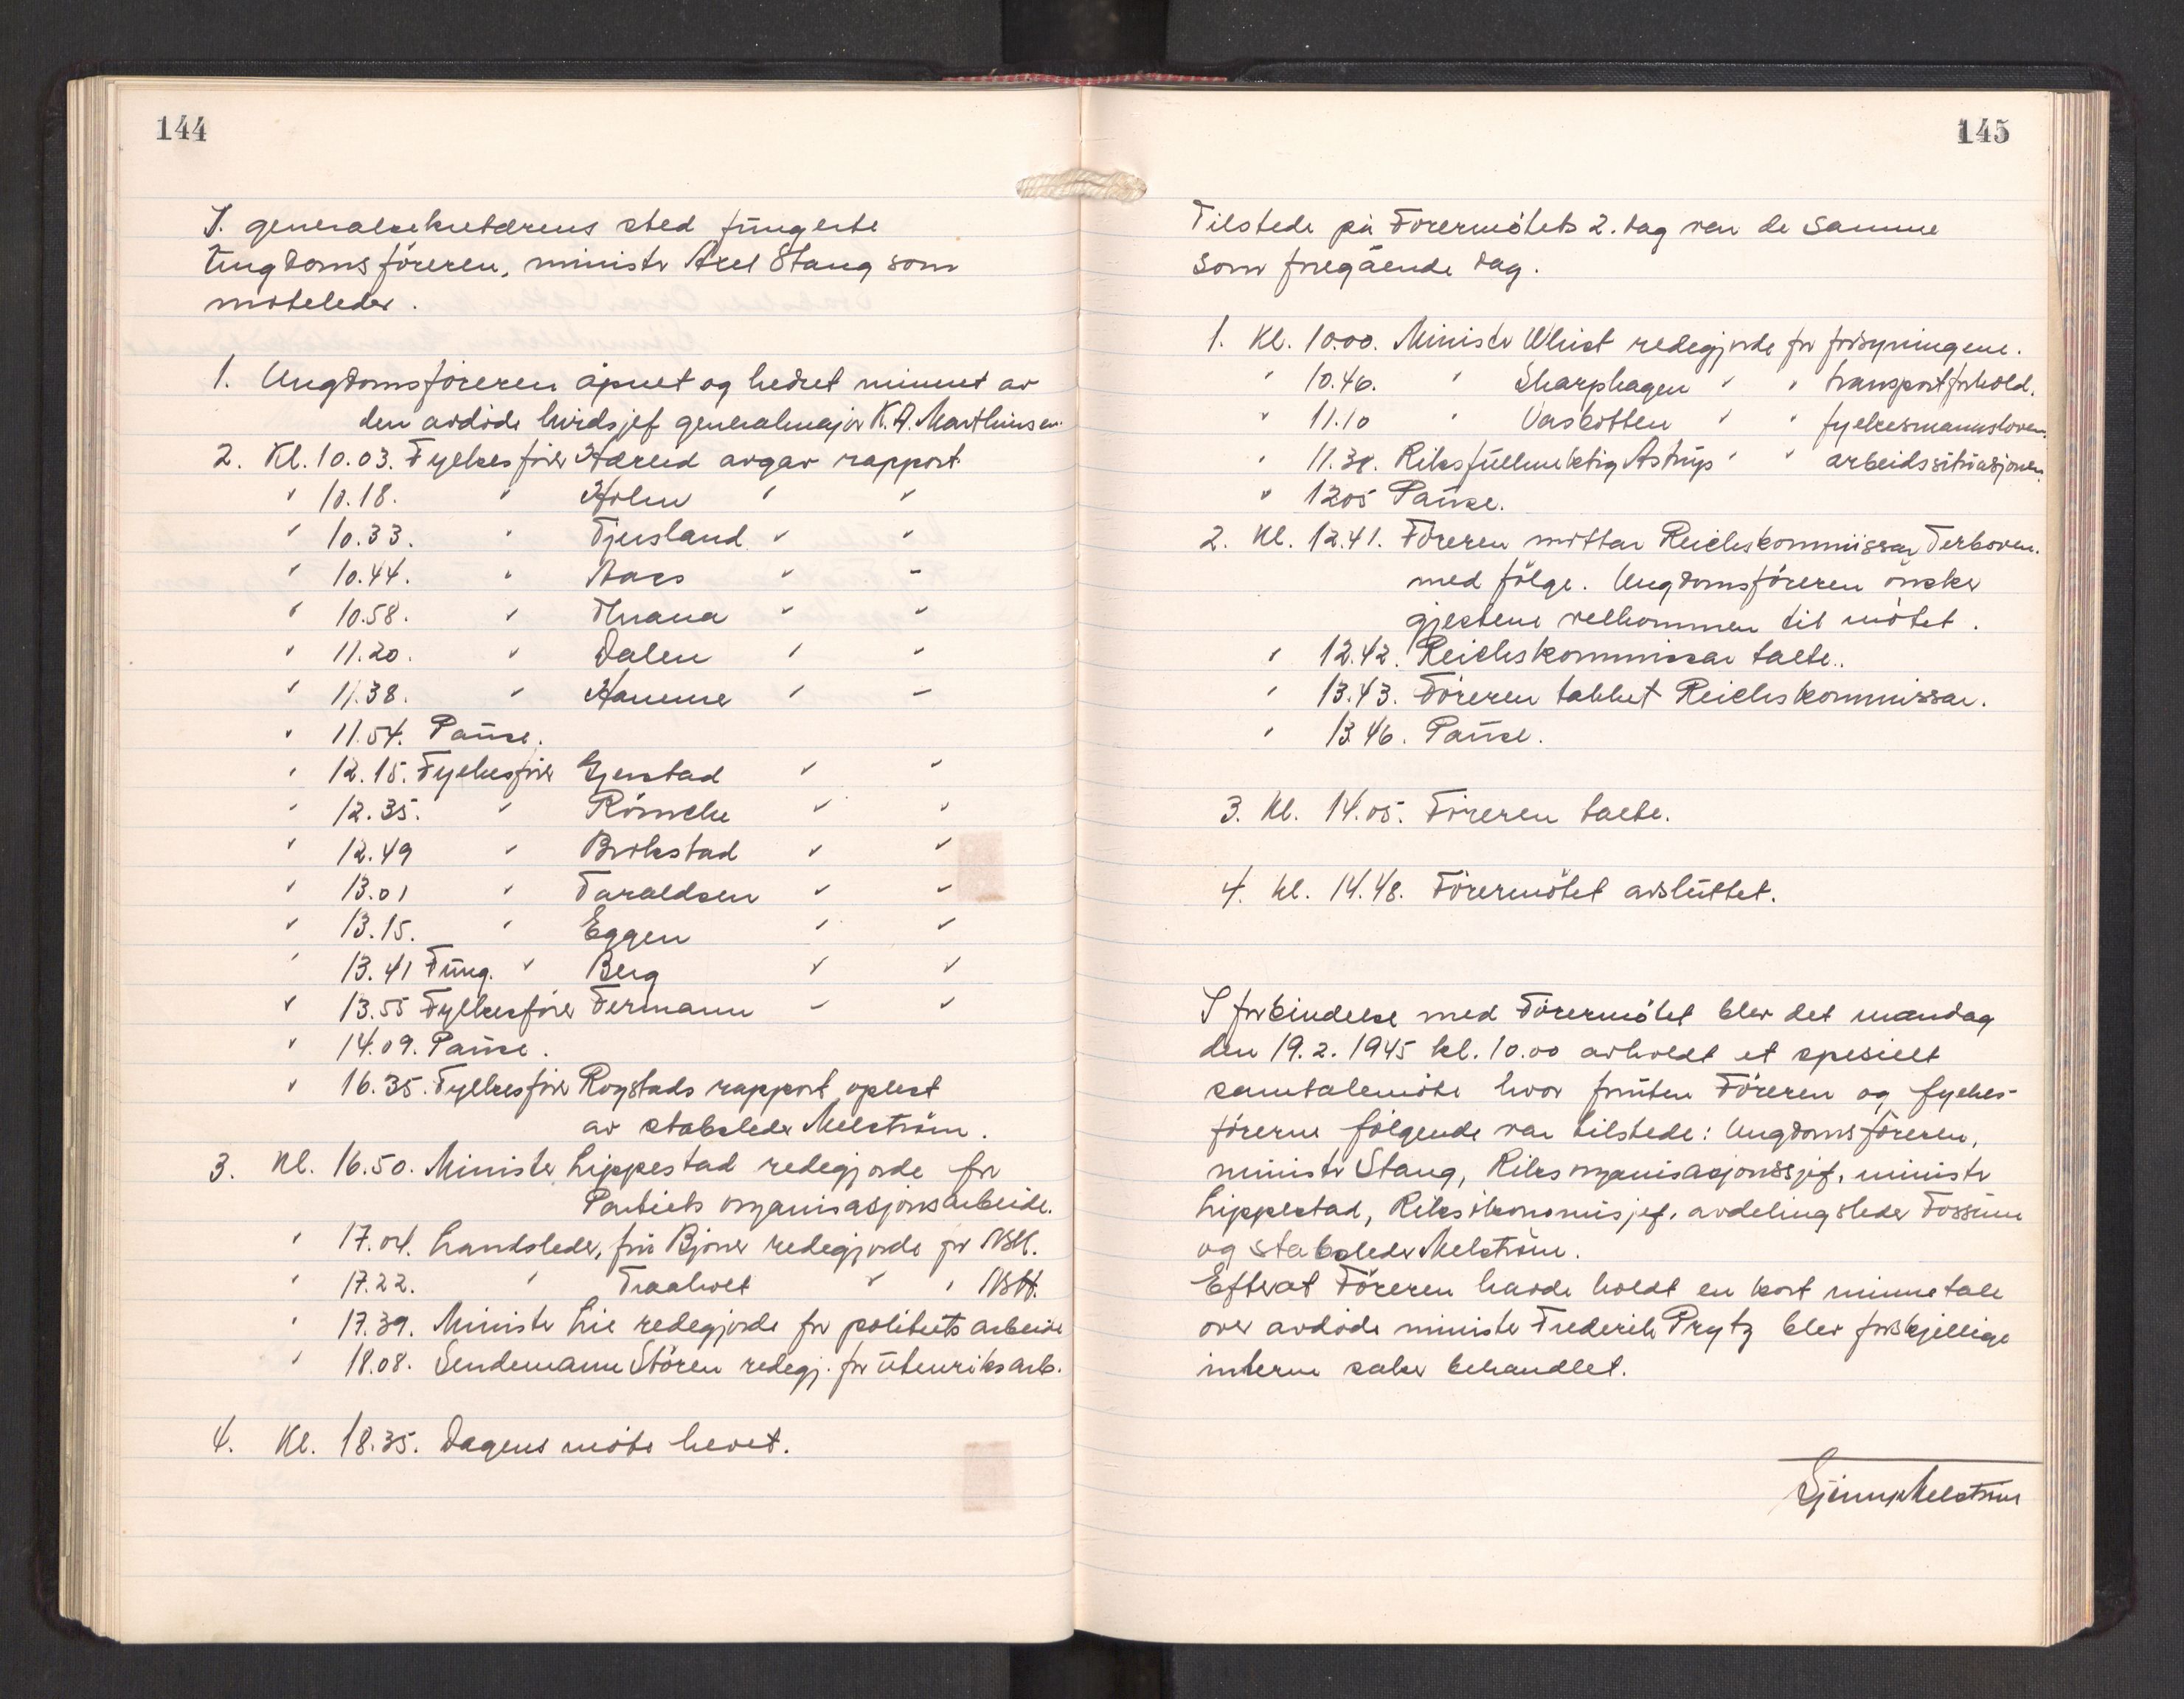 144
I. generalsekretærens sted fungerte
Ungdomsföreren, minister Axel Stang som
möteleder.
1. Ungdomsföreren åpnet og hedret minnet av
den avdöde hirdsjef generalmajor K.A. Marthinsen.
2. Kl. 10.03. Fylkesförer Hæreid avgav rapport
" 10.18. " Holm " "
" 10.33. " Fjersland " "
" 10.44. " Aass " "
" 10.58. " Thrana " "
" 11.20. " Dalen " "
" 11.38. " Hamme " "
" 11.54. Pause.
" 12.15. Fylkesförer Gjerstad " "
" 12.35. " Römcke " "
" 12.49 " Brokstad " "
" 13.01 " Taraldsen " "
" 13.15. " Eggen " "
" 13.41 Fung. " Berg " "
" 13.55 Fylkesförer Fermann " "
" 14.09. Pause.
" 16.35. Fylkesförer Rogstads rapport oplest
av stabsleder Melström.
3. Kl. 16.50. Minister Lippestad redegjorde for
Partiets organisasjonsarbeide.
" 17.04. Landsleder, fru Bjoner redegjorde for NSK.
" 17.22. " Traaholt " " NSH.
" 17.39. Minister Lie redegjorde for politiets arbeide
" 18.08. Sendemann Stören redegj. for utenriksarb.
4. Kl. 18.35. Dagens möte hevet.
145
Tilstede på Förermötets 2. dag var de samme
som foregående dag.
1. Kl. 10.00. Minister Whist redegjorde for forsyningene.
" 10.46. " Skarphagen " " transportforhold.
" 11.10 " Vasbotten " " fylkesmannsloven.
" 11.38. Riksfullmektig Astrup " " arbeidssituasjonen.
" 1205 Pause.
2. Kl. 12.41. Föreren mottar Reichskommissar Terboven
med fölge. Ungdomsföreren önsker
gjestene velkommen til mötet.
" 12.42. Reichskommissar talte.
" 13.43. Föreren takket Reichskommissar.
" 13.46. Pause.
3. Kl. 14.05. Föreren talte.
4. Kl. 14.48. Förermötet avsluttet.
I forbindelse med Förermötet blev det mandag
den 19.2.1945 kl. 10.00 avholdt et spesielt
samtalemöte hvor foruten Föreren og fylkes-
förerne fölgende var tilstede: Ungdomsföreren,
minister Stang, Riksorganisasjonssjef, minister
Lippestad, Riksökonomisjef, avdelingsleder Fossum
og stabsleder Melström.
Efter at Föreren hadde holdt en kort minnetale
over avdöde minister Frederik Prytz blev forskjellige
interne saker behandlet.
Melström